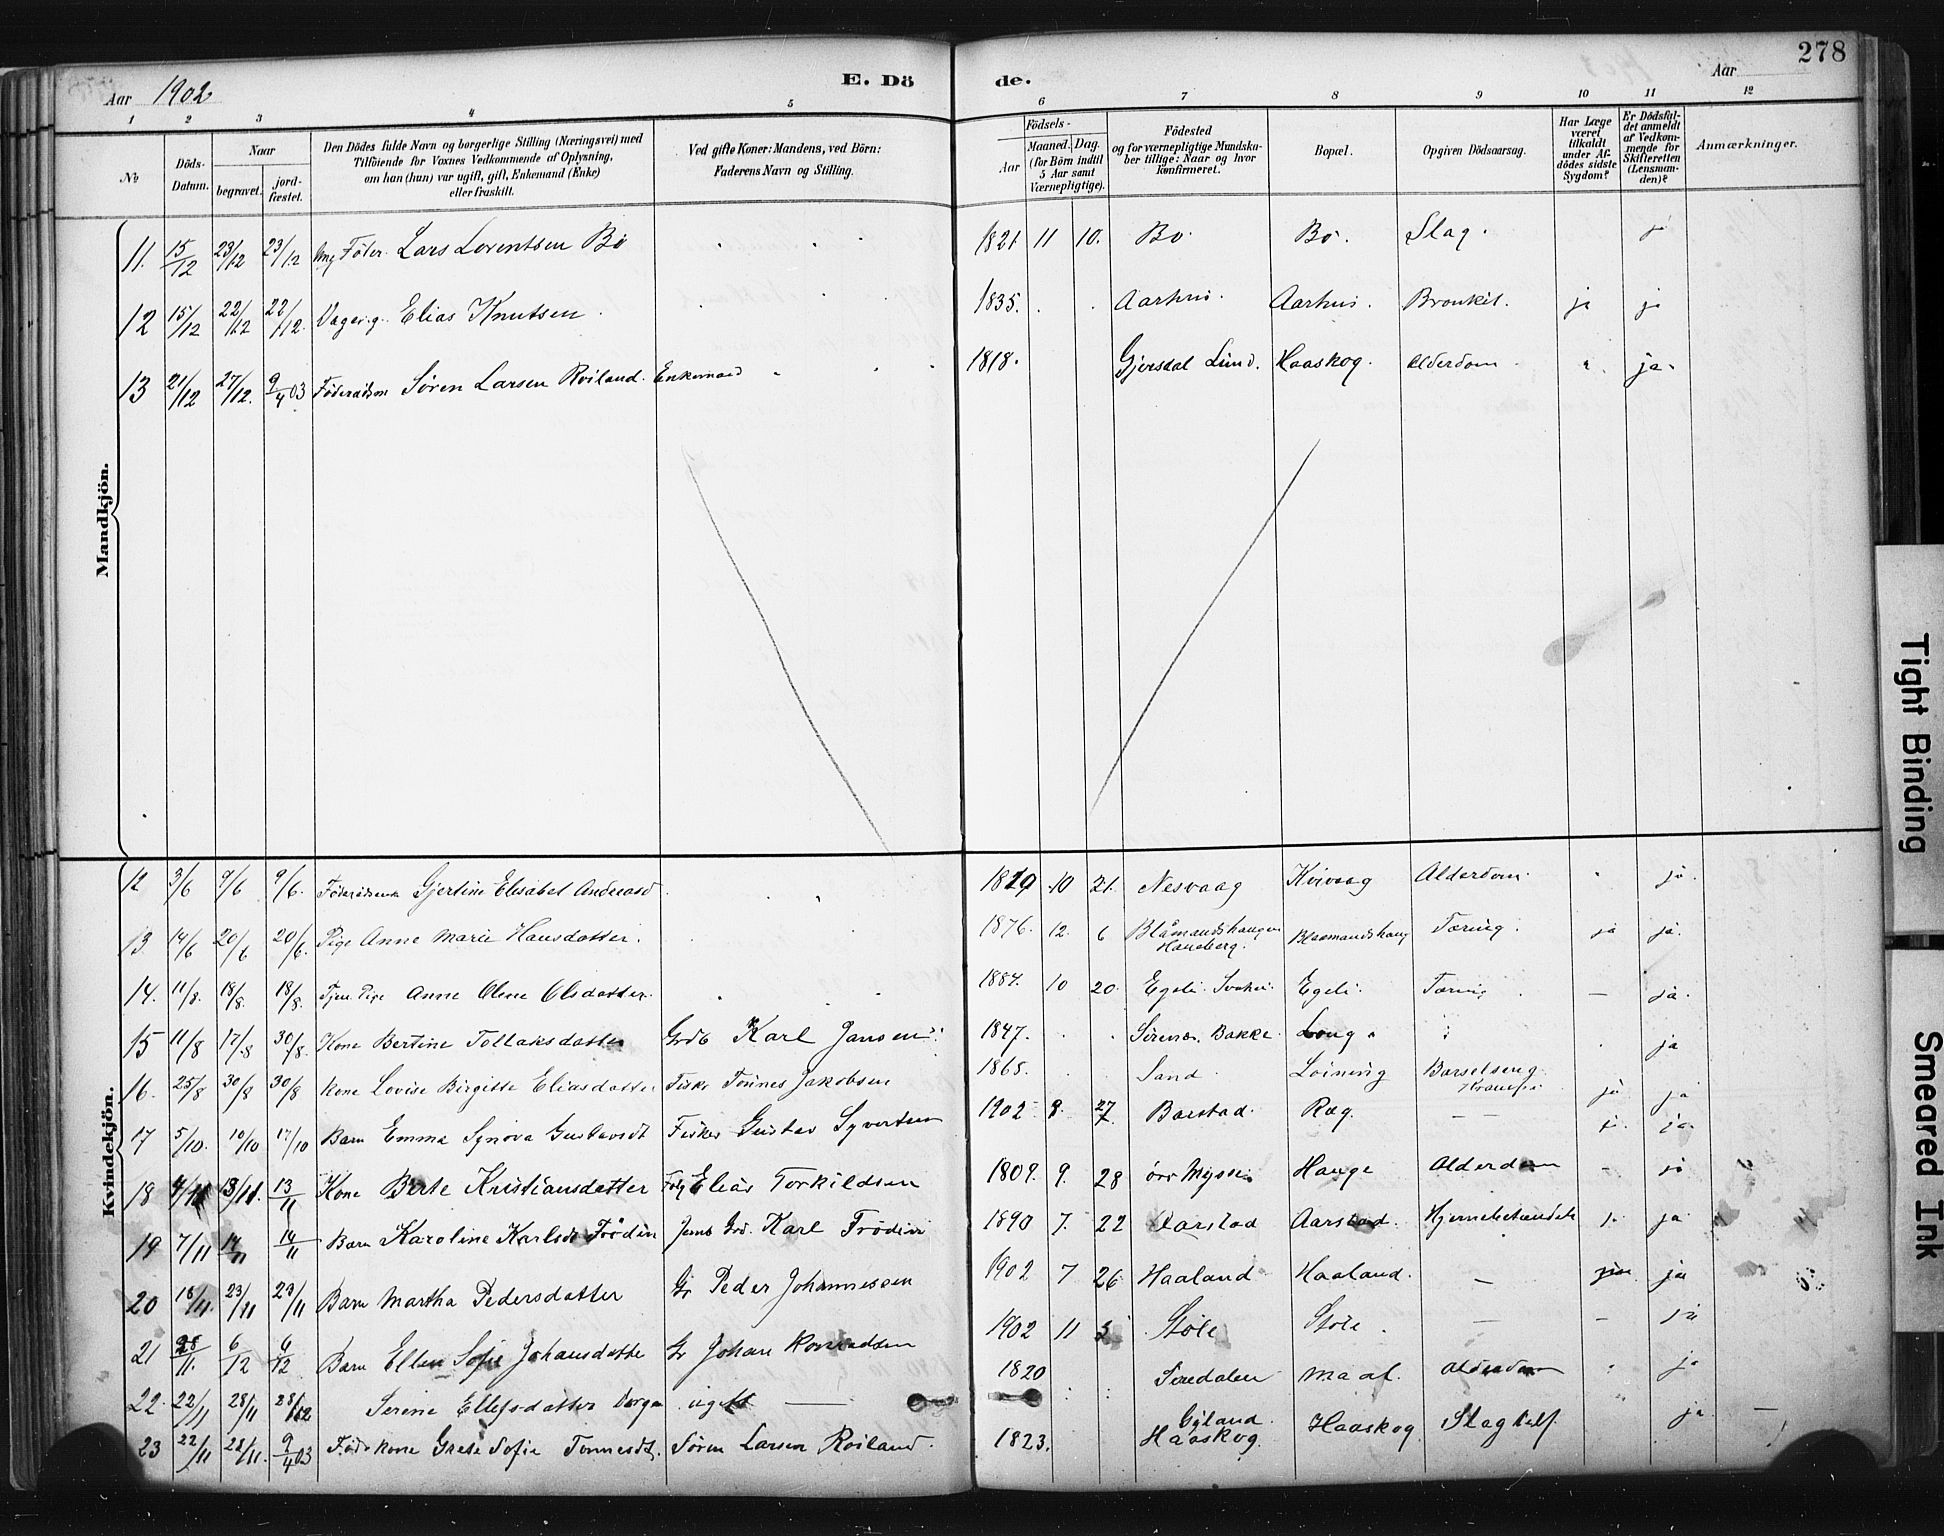 278
Aar 1902
E. Dö de.
Aar
1 2 3 4 5 6 7 8 9 10 11 12
No
Döds-Datum.
Naar
begravet.
jord-fæstet.
Den Dödes fulde Navn og borgerlige Stilling (Næringsvei) med
Tilföiende for Voxnes Vedkommende af Oplysning,
om han (hun) var ugift, gift, Enkemand (Enke)
eller fraskilt.
Ved gifte Koner: Mandens, ved Börn:
Faderens Navn og Stilling.
Födsels-
Aar
Maaned. Dag.
(for Börn indtil
5 Aar samt
Værnepligtige).
Födested
og for værnepligtige Mandska-
ber tillige: Naar og hvor
konfirmeret.
Bopæl.
Opgiven Dödsaarsag.
Har Læge
været
tilkaldt
under Af-
dödes sidste
Sygdom?
Er Dödsfal-
det anmeldt
af Vedkom-
mende for
Skifteretten
(Lensman-
den)?
Anmærkninger.
Mandkjön.
11. 15/12 23/12 23/12 Lars Lorentsen Bö 1821 11 10. Bö Bö. Slag. ja
12 15/12 22/12 22/12 Elias Knutsen 1835. Aarhus. Aarhus. Bronkit. ja ja
13 21/12 27/12. 9/4 03 Föderaadsm Sören Larsen Röiland. Enkemand 1818. Gjersdal Lund. Haaskog. Alderdom ja.
Kvindekjön.
12 3/6 9/6 9/6. Gjertine Elisabet Andreasd 10 21. Nesvaag Kvivaag Alderdom. ja.
13 14/6 20/6 20/6. Pige Anne Marie Hansdatter. 1876. 12. 6 Blåmandshaugen Haneberg. Blaamandshaug Tæring. ja ja.
14. 11/8. 18/8. 18/8. Tjen. Pige Anne Oline Olsdatter. 1884. 10 20. Egeli. Egeli. Tæring — ja.
15 11/8 17/8 30/8. Kone Bertine Tollaksdatter Grdb Karl Jansen 1847. Sirenæs. Bakke. Long. ja
16. 25/8 30/8 30/8 Kone Lovise Birgitte Eliasdatter Fisker Tönnes Jakobsen 1865. Sand Löining Barselseng ja ja
17 5/10. 10/10 17/10 Barn Emma Synöva Gustavsdt Fisker Gustav Syvertsen 1902 9. 27 Barstad. Ræg. — — ja.
18 13/11 Kone Berte Kristiansdatter Elias Torkildsen 1809. 9. 28 Hauge Alderdom ja
19 7/11 14/11 14/11 Barn Karoline Karlsdt Frödin Karl Frödin 1890 7. 22 Aarstad Aarstad. Hjernebetændelse ja
20 18/11. 23/11 23/11 Barn Martha Pedersdatter Gr Peder Johannessen 1902 7 26 Haaland Haaland. — ja
21 28/11 6/12 6/12 Barn Ellen Sofie Johansdatter Gr Johan Konradsen 1902 11 3 Stöle Stöle. — — ja
22. 22/11 28/11 Serine Ellefsdatter ugift — 1820 Siredalen Alderdom ja
23 22/11 28/11. 9/4 03 Föd. kone Grete Sofie Tönnesdt. Sören Larsen Röiland. 1823. Gyland. Haaskog. Haaskog ja —
Tight Binding
Smeared Ink